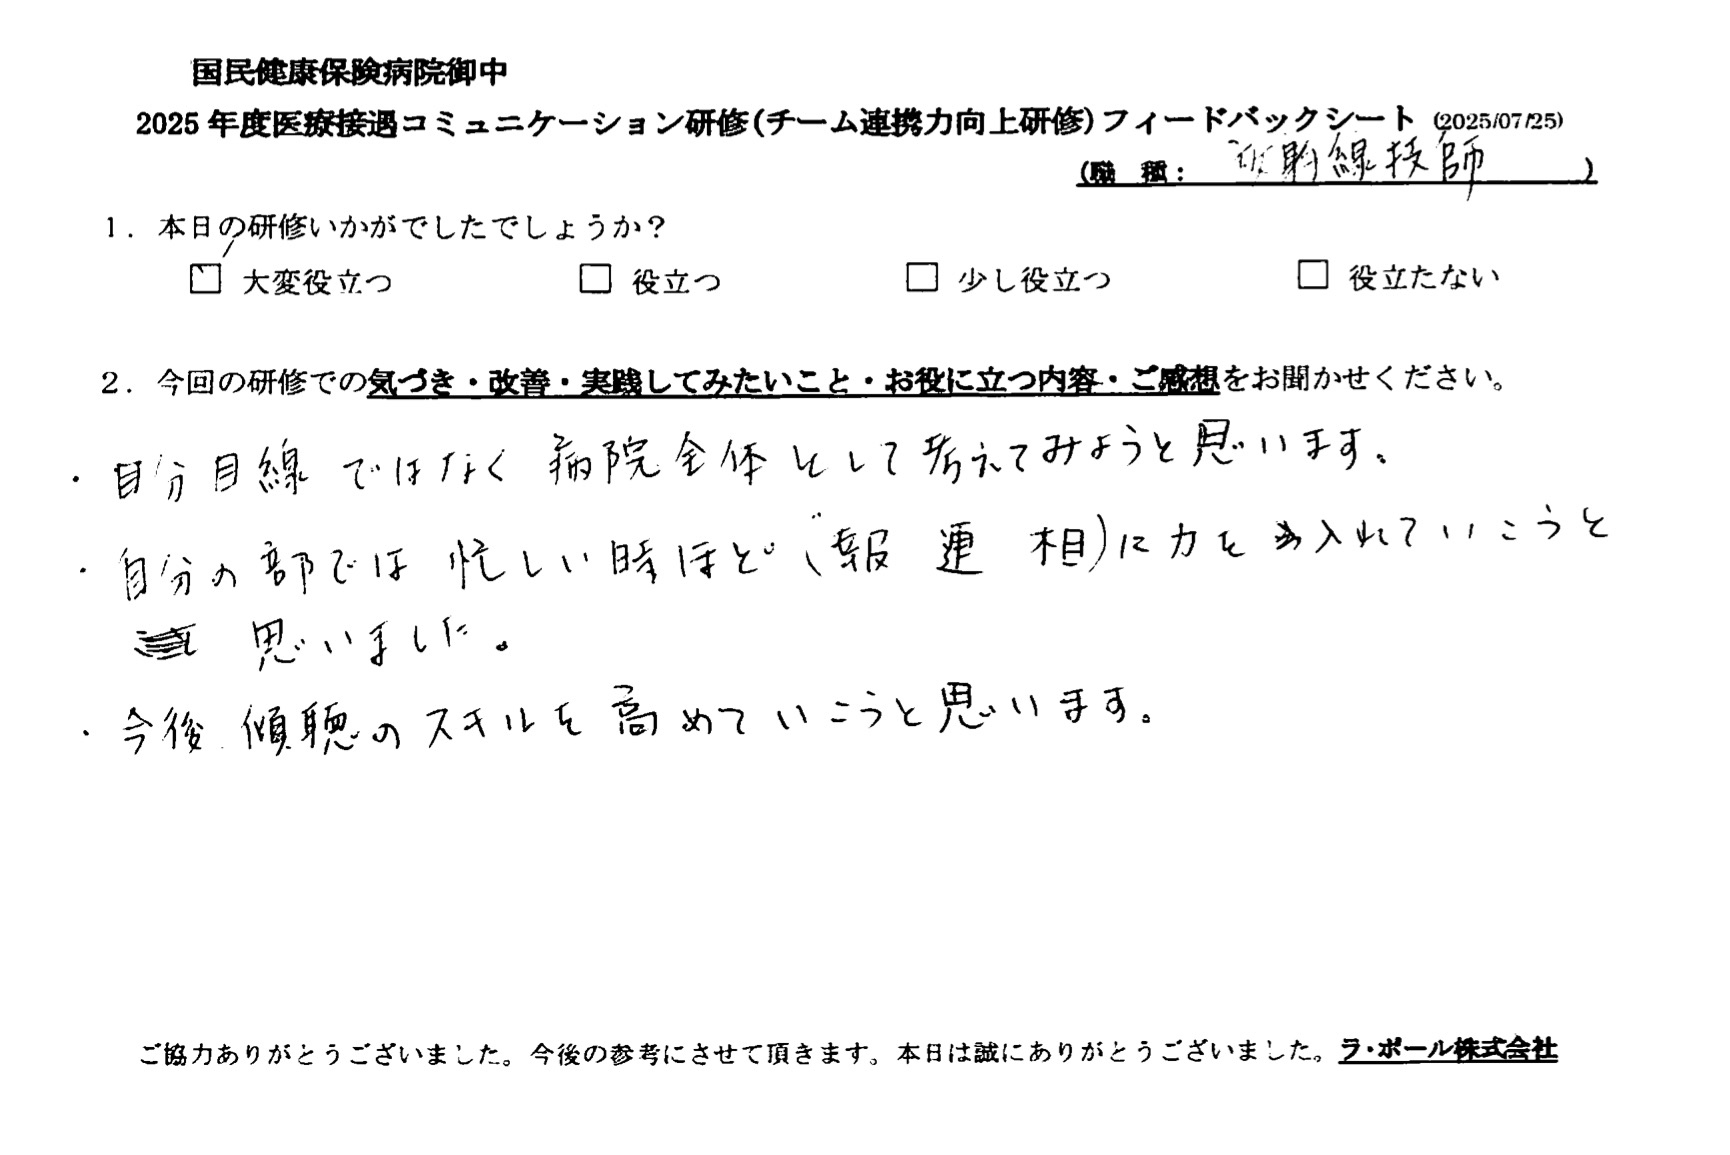 国民健康保険病院御中
2025年度医療接遇コミュニケーション研修(チーム連携力向上研修)フィードバックシート (2025/07/25)
(職 種： 放射線技師 )
1．本日の研修いかがでしたでしょうか？
☑ 大変役立つ □ 役立つ □ 少し役立つ □ 役立たない
2．今回の研修での気づき・改善・実践してみたいこと・お役に立つ内容・ご感想をお聞かせください。
・自分目線ではなく病院全体として考えてみようと思います。
・自分の部では忙しい時ほど(報 連 相)に力を入れていこうと
思いました。
・今後傾聴のスキルを高めていこうと思います。
ご協力ありがとうございました。今後の参考にさせて頂きます。本日は誠にありがとうございました。ラ・ポール株式会社